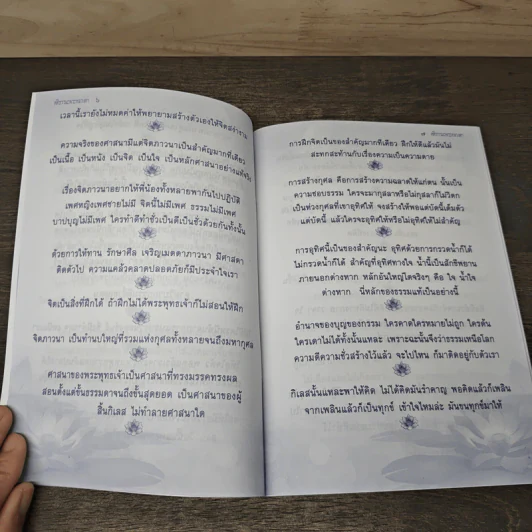 ทีฆายุพรรษา ๖
เวลานี้เรายังไม่หมดค่าให้พยายามสร้างตัวเองให้จิตสง่างาม
ความจริงของศาสนามีแต่จิตภาวนาเป็นสำคัญมากทีเดียว
เป็นเนื้อ เป็นหนัง เป็นจิต เป็นใจ เป็นหลักศาสนาอย่างแท้จริง
เรื่องจิตภาวนาอยากให้พี่น้องทั้งหลายพากันไปปฏิบัติ
เพศหญิงเพศชายไม่มี จิตนี้ไม่มีเพศ ธรรมไม่มีเพศ
บาปบุญไม่มีเพศ ใครทำดีทำชั่วเป็นดีเป็นชั่วด้วยกันทั้งนั้น
ด้วยการให้ทาน รักษาศีล เจริญเมตตาภาวนา มีศาสดา
ติดตัวไป ความแคล้วคลาดปลอดภัยก็มีประจำใจเรา
จิตเป็นสิ่งที่ฝึกได้ ถ้าฝึกไม่ได้พระพุทธเจ้าก็ไม่สอนให้ฝึก
จิตภาวนา เป็นทำนบใหญ่ที่รวมแห่งกุศลทั้งหลายจนถึงมหากุศล
ศาสนาของพระพุทธเจ้าเป็นศาสนาที่ทรงมรรคทรงผล
สอนตั้งแต่ขั้นธรรมดาจนถึงขั้นสุดยอด เป็นศาสนาของผู้
สิ้นกิเลส ไม่ทำลายศาสนาใด
๗
การฝึกจิตเป็นของสำคัญมากทีเดียว ฝึกให้ดีแล้วมันไม่
สะทกสะท้านกับเรื่องความเป็นความตาย
การสร้างกุศล คือการสร้างความฉลาดให้แก่ตน นั้นเป็น
ความชอบธรรม ใครจะมากุศลาหรือไม่กุศลาก็ไม่วิตก
เป็นห่วงกุศลที่เขาอุทิศให้ จงสร้างให้พอแต่บัดนี้เต็มตัว
แต่บัดนี้ แล้วใครจะอุทิศให้หรือไม่อุทิศให้ไม่สำคัญ
การอุทิศนี้เป็นของสำคัญนะ อุทิศด้วยการกรวดน้ำก็ได้
ไม่กรวดน้ำก็ได้ สำคัญที่อุทิศทางใจ น้ำนี้เป็นสักขีพยาน
ภายนอกต่างหาก หลักอันใหญ่โตจริงๆ คือ ใจ น้ำใจ
ต่างหาก นี่หลักของธรรมแท้เป็นอย่างนี้
อำนาจของบุญของกรรม ใครคาดใครหมายไม่ถูก ใครด้น
ใครเดาไม่ได้ทั้งนั้นแหละ เพราะฉะนั้นจึงว่าธรรมเหนือโลก
ความดีความชั่วสร้างไว้แล้ว จะไปไหน ก็มาติดอยู่กับตัวเรา
กิเลสนั้นแหละพาให้คิด ไม่ได้คิดมันรำคาญ พอคิดแล้วก็เพลิน
จากเพลินแล้วก็เป็นทุกข์ เข้าใจไหมล่ะ มันขนทุกข์มาให้